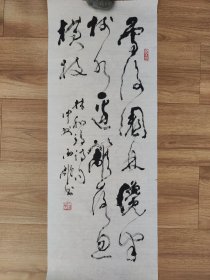 雪後園林纔半
樹水邊籬落忽
橫枝
林和靖詩句